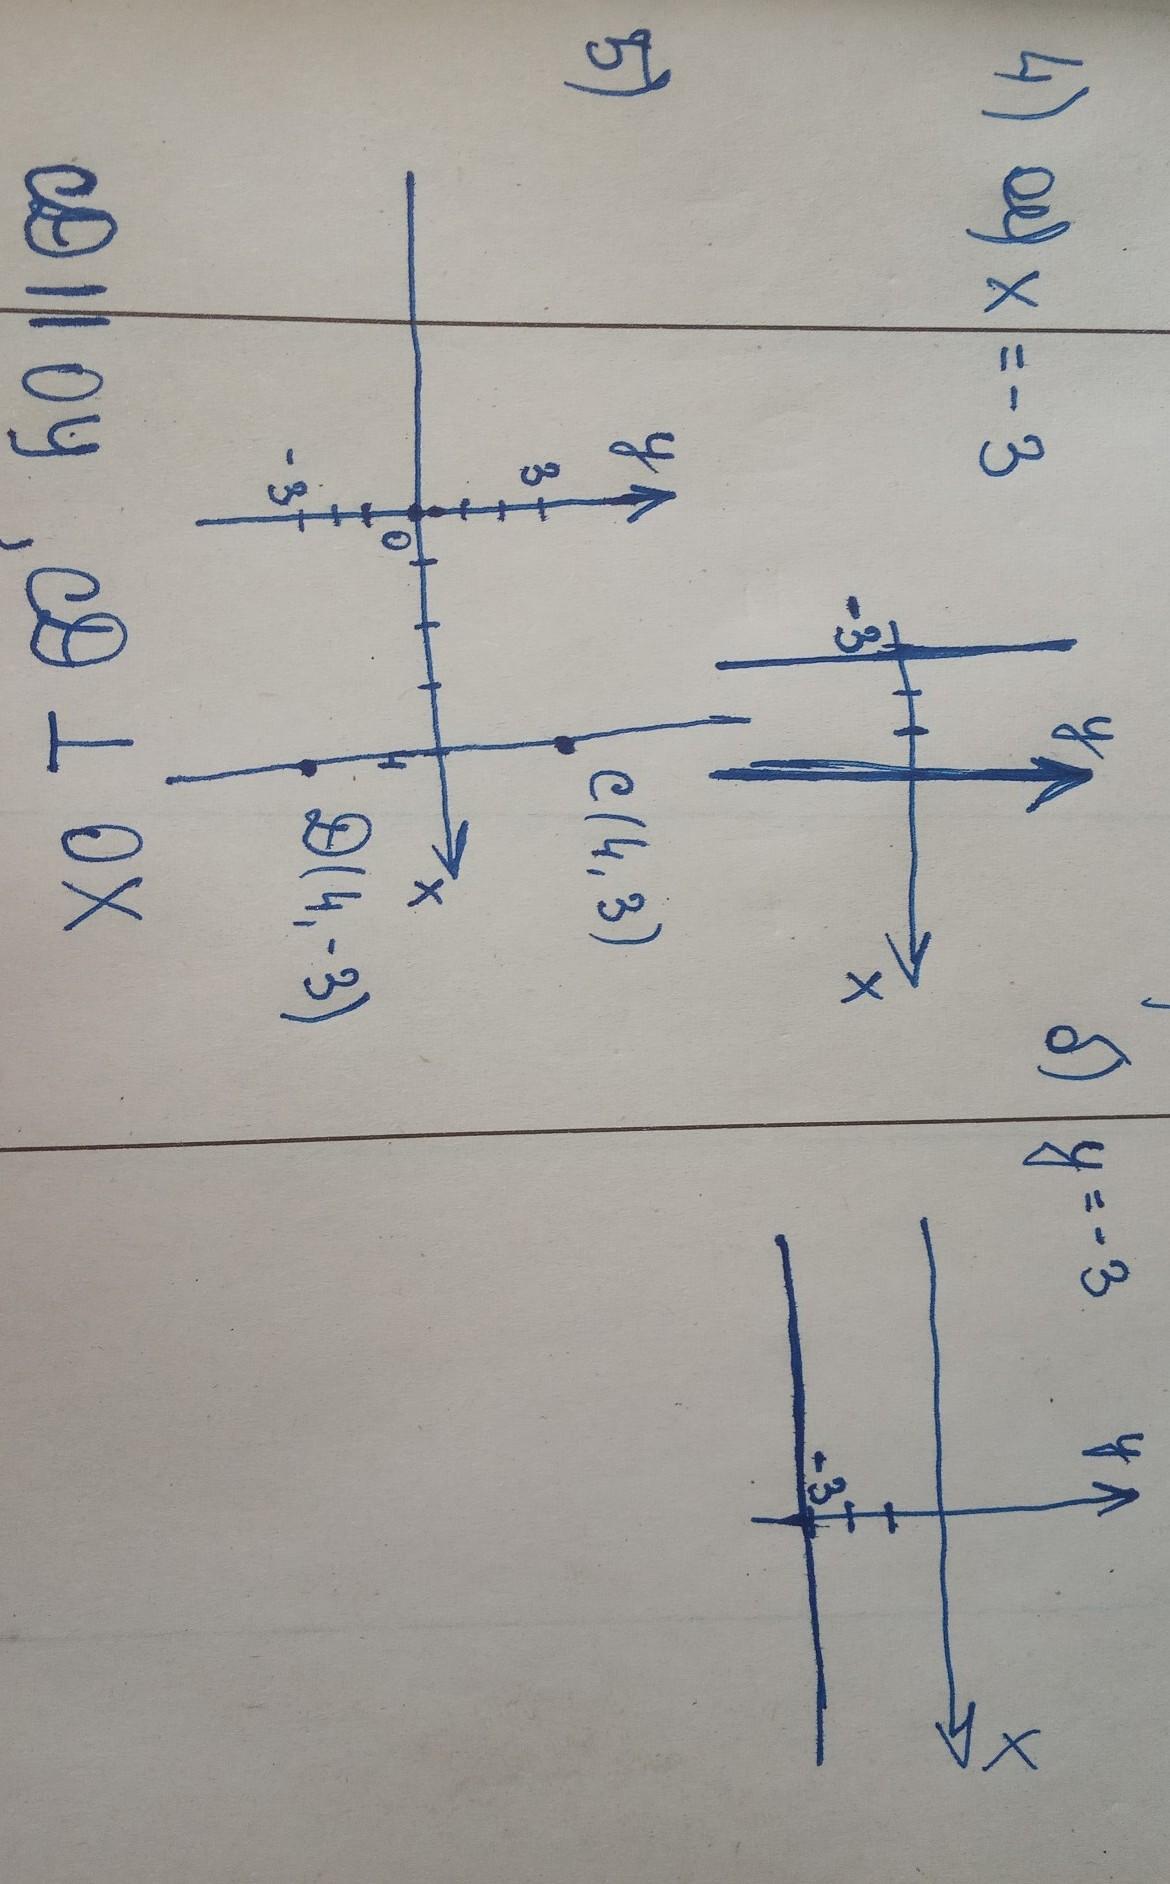 4) а) x = -3
б) y = -3
y
-3
x
y
-3
x
5)
y
3
C(4, 3)
0
x
-3
4
D(4, -3)
CD || OY, CD ⊥ OX